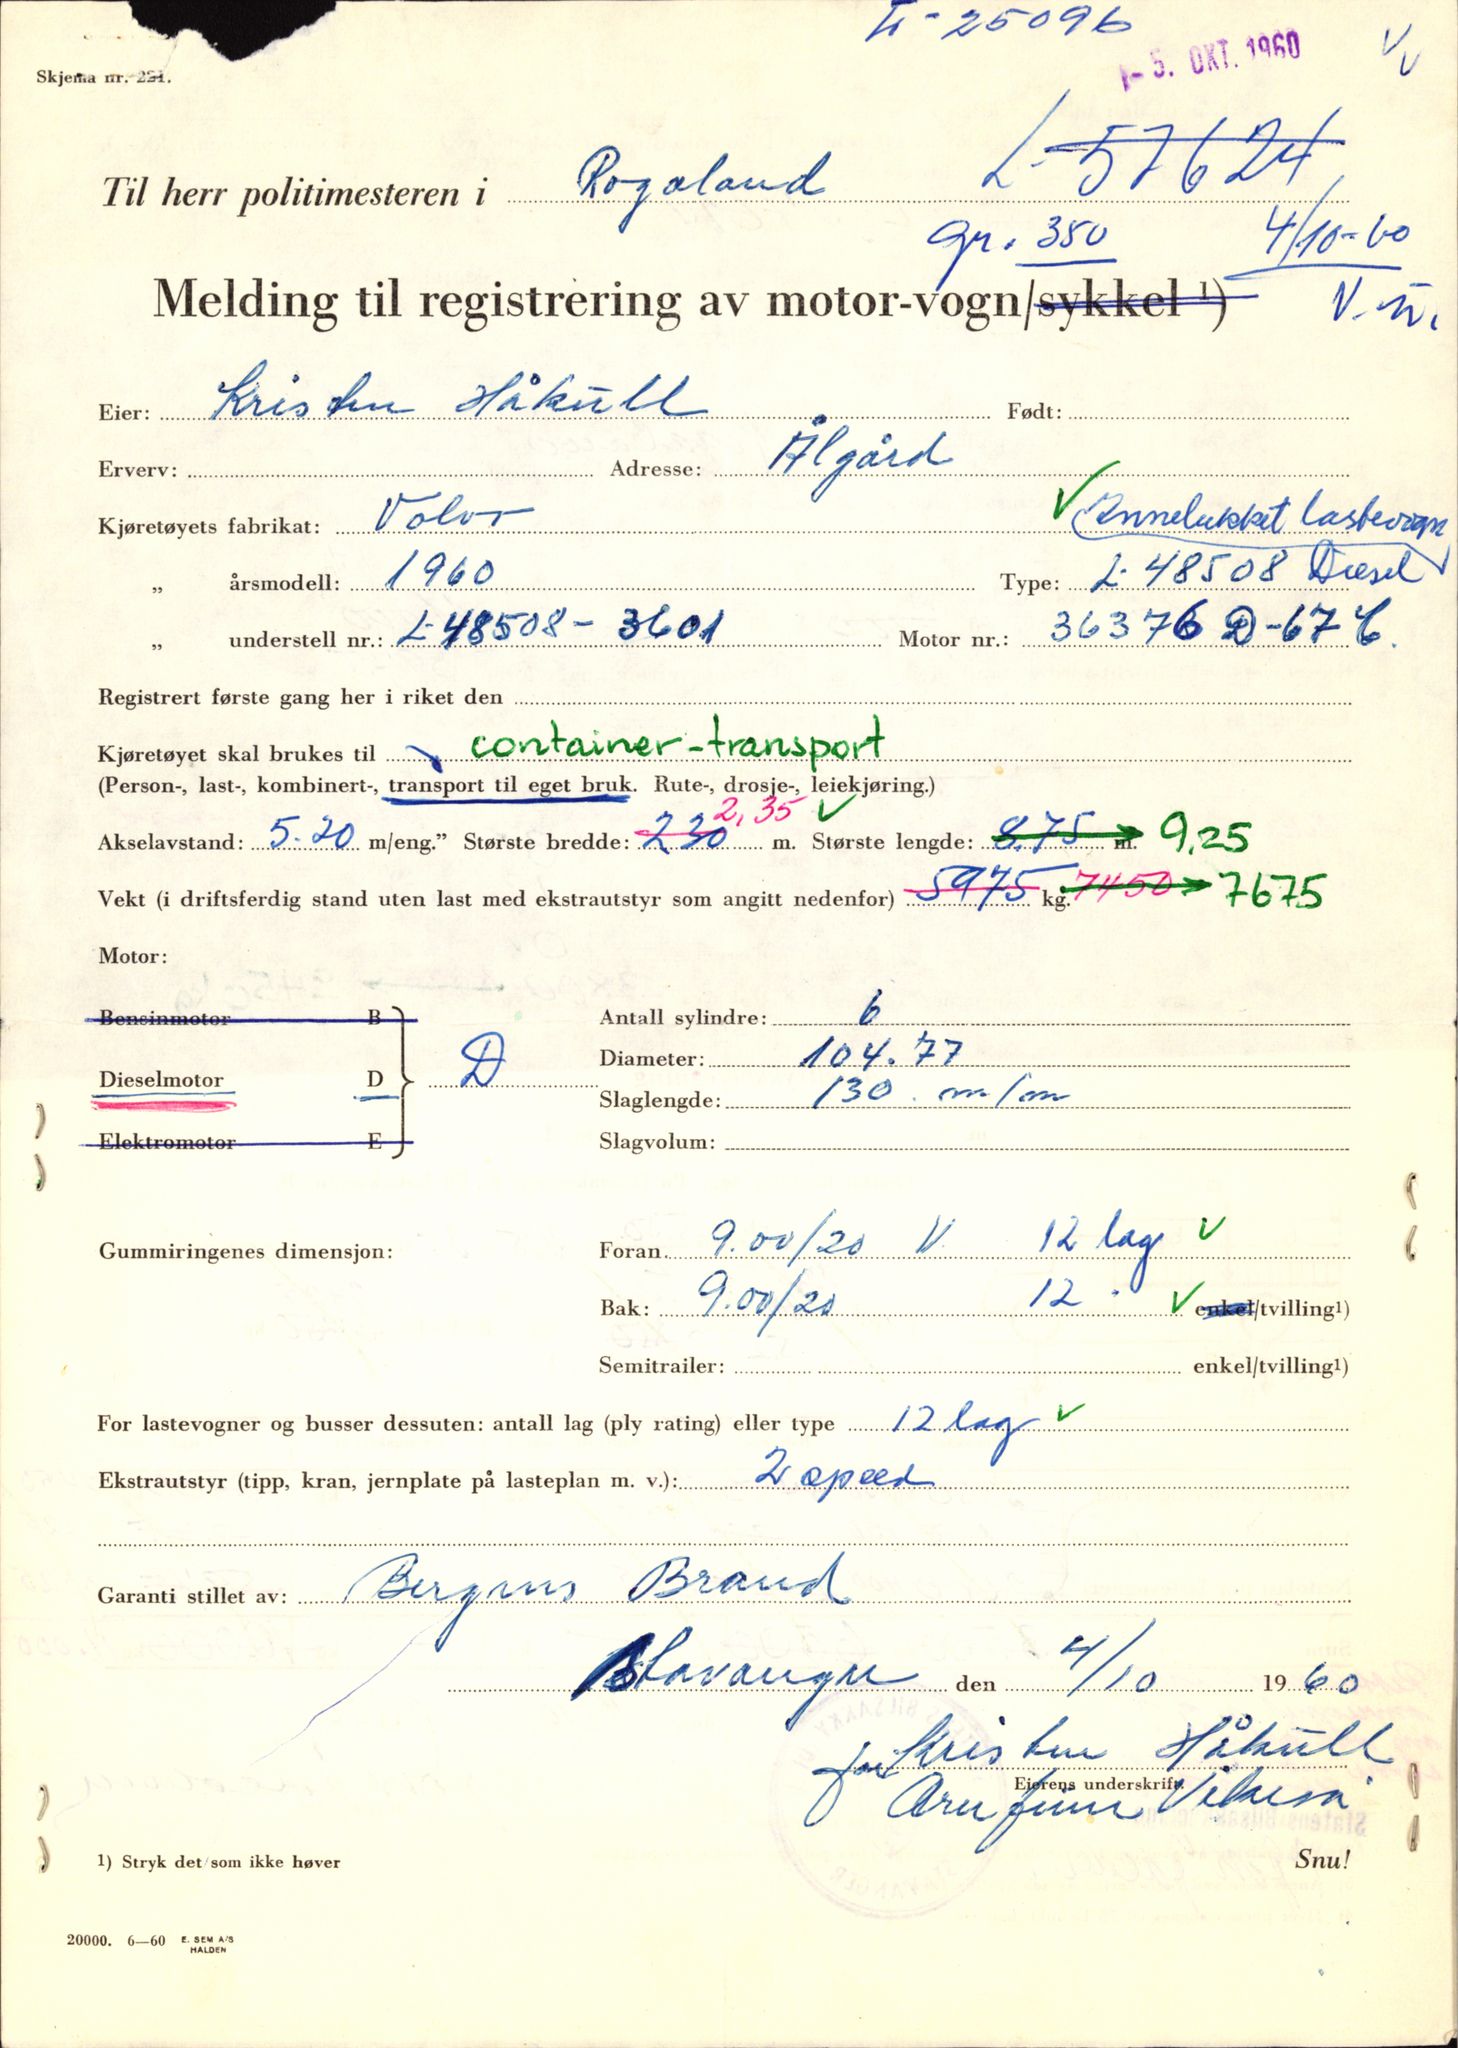 L-25096
- 5. OKT. 1960
Skjema nr. 221.
L-57624
Til herr politimesteren i Rogaland
gr. 350 4/10-60
Melding til registrering av motor-vogn/sykkel ¹)
Eier: Kristen Håkull Født:
Erverv: Adresse: Ålgård
Kjøretøyets fabrikat: Volvo Innelukket lastevogn
„ årsmodell: 1960 Type: L-48508 Diesel
„ understell nr.: L-48508-3601 Motor nr.: 36376 D-67 C.
Registrert første gang her i riket den
Kjøretøyet skal brukes til container-transport
(Person-, last-, kombinert-, transport til eget bruk. Rute-, drosje-, leiekjøring.)
Akselavstand: 5.20 m/eng.” Største bredde: 230 2,35 m. Største lengde: 8.75 m. 9,25
Vekt (i driftsferdig stand uten last med ekstrautstyr som angitt nedenfor) 5975 kg. 7450 7675
Motor:
Bensinmotor B Antall sylindre: 6
Diameter: 104.77
Dieselmotor D D
Slaglengde: 130 m/m
Elektromotor E Slagvolum:
Gummiringenes dimensjon: Foran 9.00/20 V 12 lag
Bak: 9.00/20 12 " enkel/tvilling¹)
Semitrailer: enkel/tvilling¹)
For lastevogner og busser dessuten: antall lag (ply rating) eller type 12 lag
Ekstrautstyr (tipp, kran, jernplate på lasteplan m. v.): 2 speed
Garanti stillet av: Bergens Brand
Stavanger den 4/10 1960
for Kristen Håkull
Eierens underskrift.
¹) Stryk det som ikke høver Snu!
20000. 6—60 E. SEM A/S
HALDEN